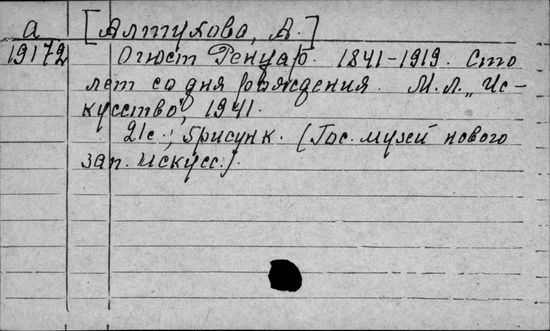 а [Алтухова, А.]
19172 Огюст Ренуар. 1841-1919. Сто
лет со дня рождения. М.Л. „Ис-
кусство", 1941.
21с.; 5рисунк. (Гос. музей нового
зап. искусс.).